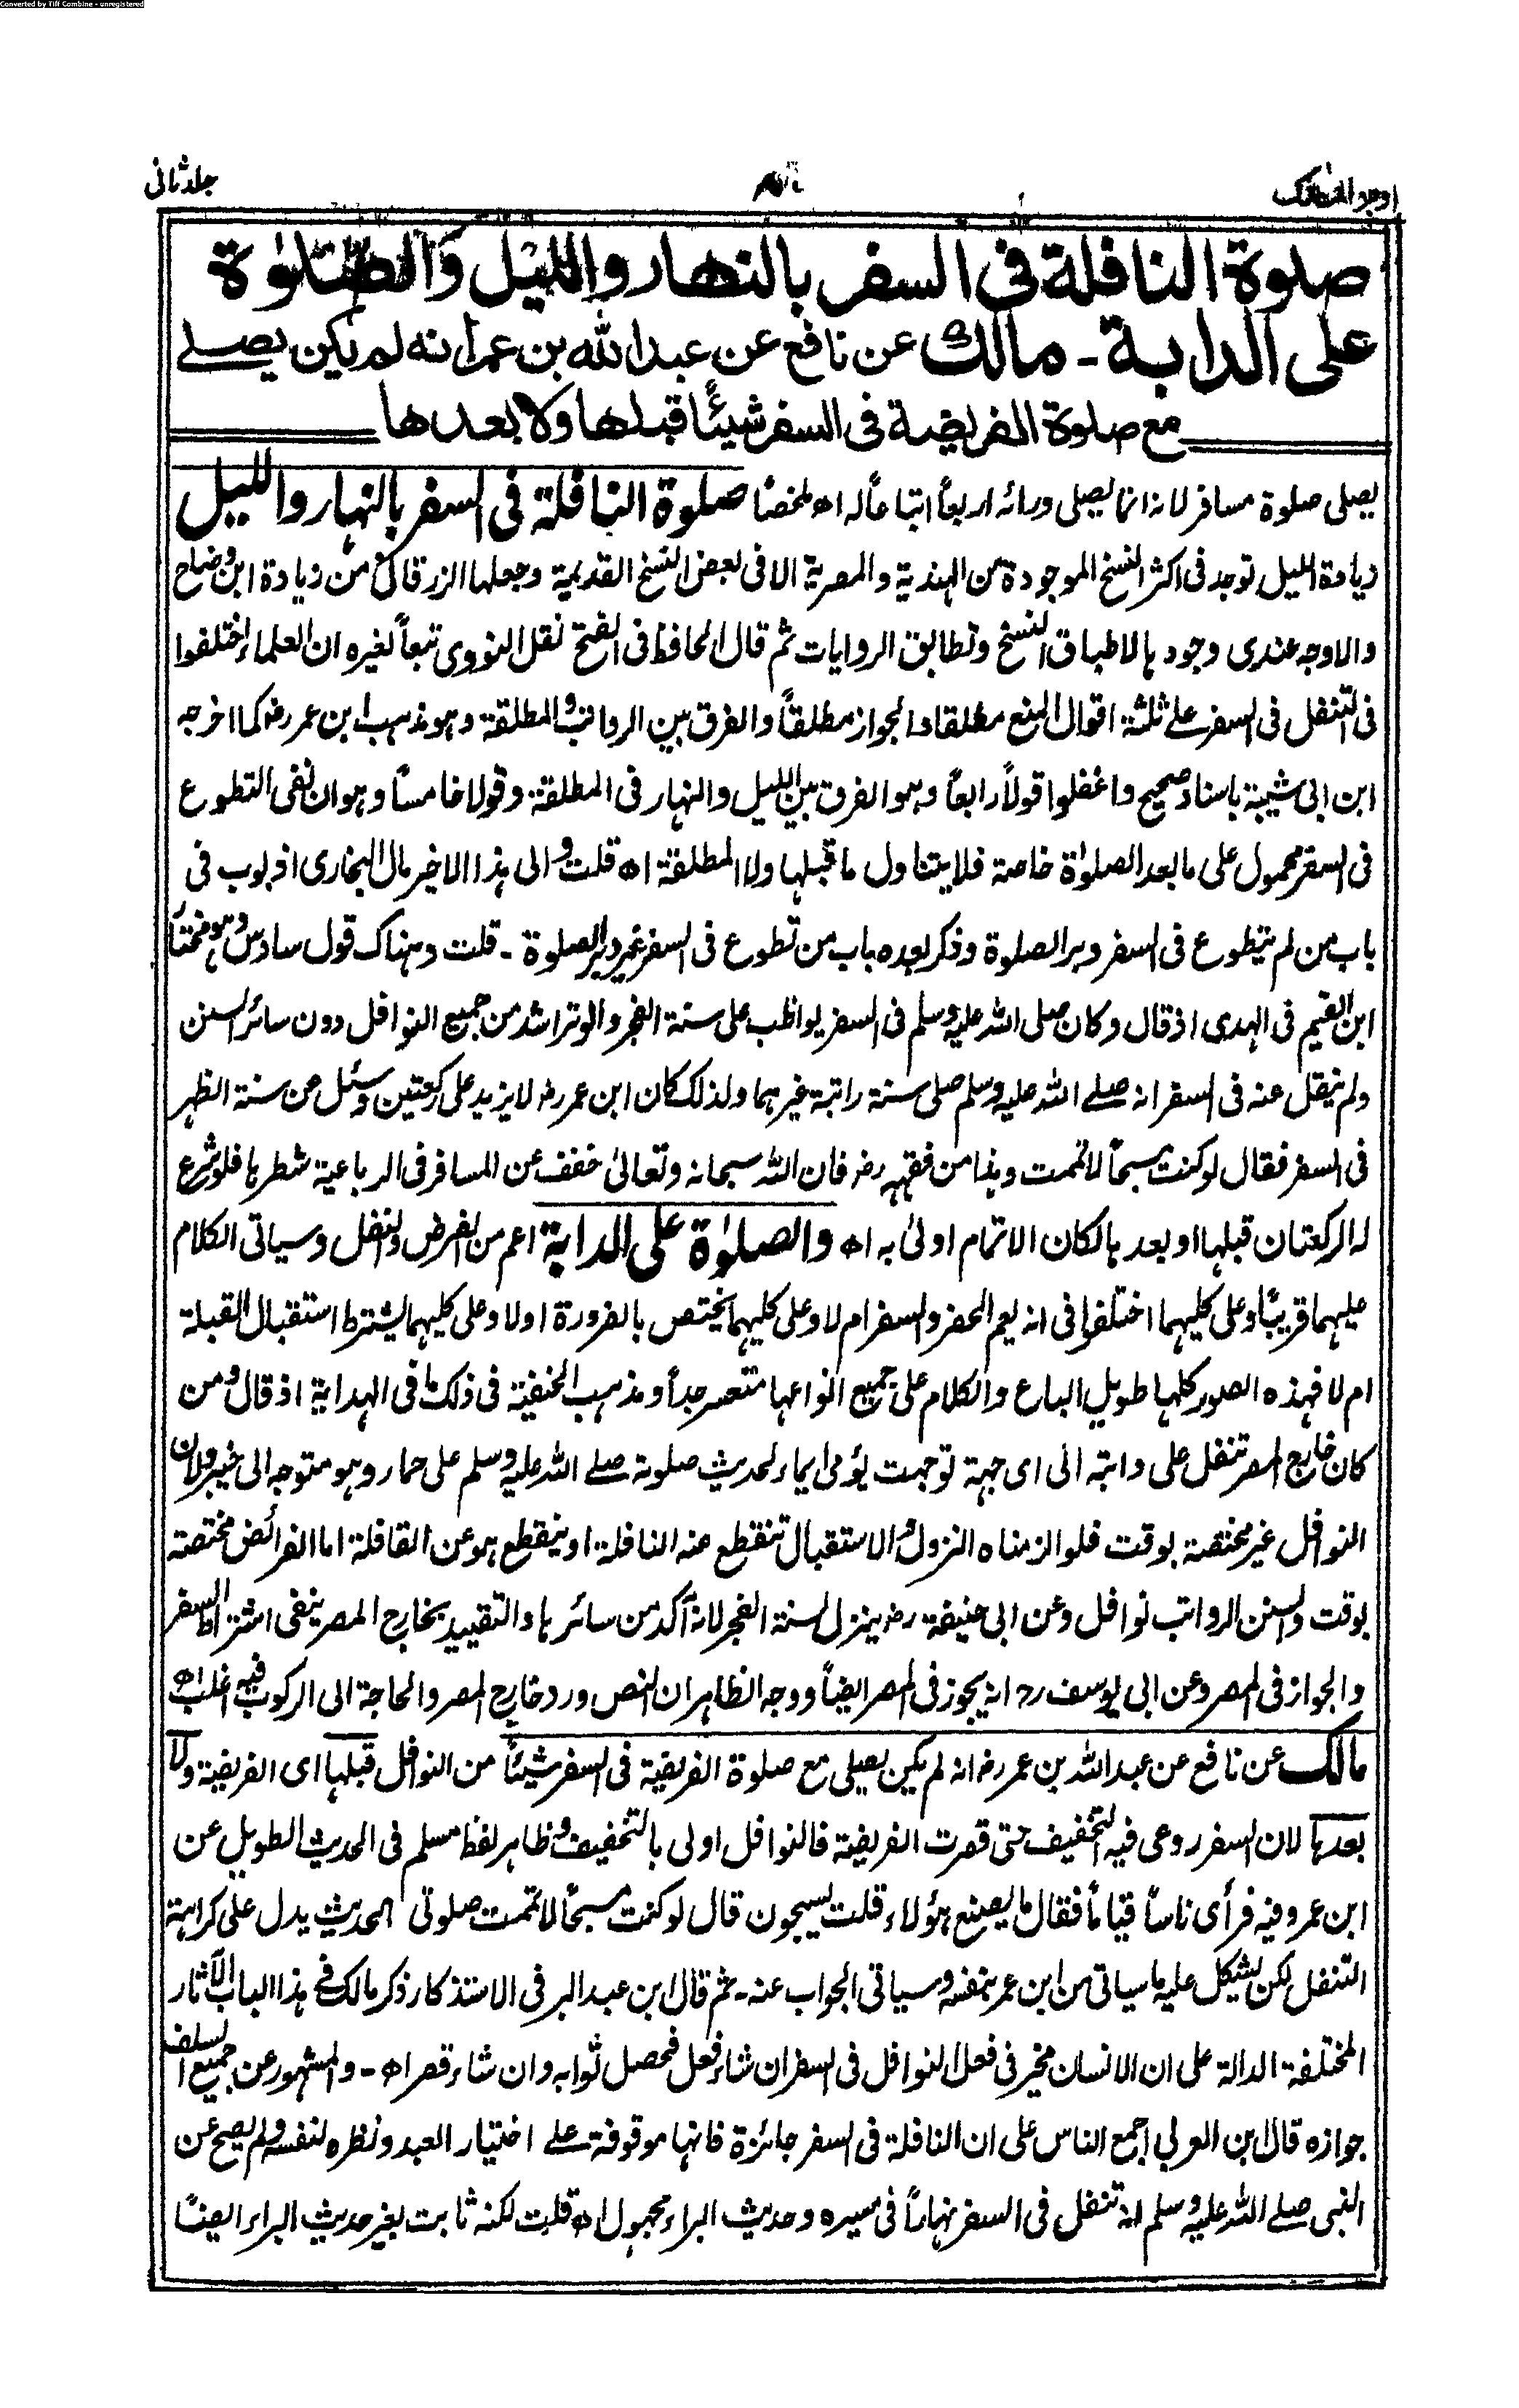 Converted by Tiff Combine - unregistered
اوجز المسالك
جلد ثانی
صلوة النافلة فی السفر بالنهار واللیل والصلوة
علی الدابة ـ مالك عن نافع عن عبد الله بن عمر انه لم یکن یصلے
مع صلوة الفریضة فی السفر شیئًا قبلها ولا بعدها
یصلی صلوة مسافر لانه انما یصلی ورائه اربعاً اتباعاً له اھ ملخصًا صلوة النافلة فی السفر بالنهار واللیل
زیادة اللیل توجد فی اکثر النسخ الموجودة من الهندیة والمصریة الا فی بعض النسخ القدیمة وجعلها الزرقانی من زیادة ابن وضاح
والاوجه عندی وجودها لاطباق النسخ وتطابق الروایات ثم قال الحافظ فی الفتح نقل النووی تبعاً لغیره ان العلماء اختلفوا
فی التنفل فی السفر علے ثلثة اقوال المنع مطلقا والجواز مطلقاً والفرق بین الرواتب والمطلقة وهو مذهب ابن عمر رضـ کما اخرجه
ابن ابی شیبة باسناد صحیح واغفلوا قولاً رابعاً وهو الفرق بین اللیل والنهار فی المطلقة وقولا خامساً وهو ان نفی التطوع
فی السفر محمول علی ما بعد الصلوٰة خاصة فلا یتناول ما قبلها ولا المطلقة اھ قلت والی هذا الاخیر مال البخاری اذ بوب فی
باب من لم یتطوع فی السفر دبر الصلوة وذکر بعده باب من تطوع فی السفر غیر دبر الصلوة ـ قلت وهناک قول سادس وهو مختار
ابن القیم فی الهدی اذ قال وکان صلی الله علیه وسلم فی السفر یواظب علی سنة الفجر والوتر اشد من جمیع النوافل دون سائر السنن
ولم ینقل عنه فی السفر انه صلے الله علیه وسلم صلی سنة راتبة غیرهما ولذلک کان ابن عمر رضـ لا یزید علی رکعتین وسئل عن سنة الظهر
فی السفر فقال لو کنت مسبحاً لاتممت وهذا من فقهه رضـ فان الله سبحانه وتعالیٰ خفف عن المسافر فی الرباعیة شطرها فلو شرع
له الرکعتان قبلها او بعدها لکان الاتمام اولیٰ به اھ والصلوٰة علی الدابة اعم من الفرض والنفل وسیاتی الکلام
علیهما قریبًا وعلی کلیهما اختلفوا فی انه یعم الحضر والسفر ام لا وعلی کلیهما یختص بالضرورة اولا وعلی کلیهما یشترط استقبال القبلة
ام لا فهذه الصور کلها طویل الباع والکلام علیٰ جمیع انواعها متعسر جداً ومذهب الحنفیة فی ذلک ما فی الهدایة اذ قال ومن
کان خارج المصر تنفل علی دابته الی ای جهة توجهت یؤمی ایماء لحدیث صلوته صلے الله علیه وسلم علی حمار وهو متوجه الی خیبر ولان
النوافل غیر مختصة بوقت فلو الزمناه النزول والاستقبال تنقطع عنه النافلة او ینقطع هو عن القافلة اما الفرائض مختصة
بوقت والسنن الرواتب نوافل وعن ابی حنیفة رضـ ینزل لسنة الفجر لانه آکد من سائرها والتقیید بخارج المصر ینفی اشتراط السفر
والجواز فی المصر وعن ابی یوسف رح انه یجوز فی المصر ایضاً ووجه الظاهر ان النص ورد خارج المصر والحاجة الی الرکوب فیه اغلب اھ
مالك عن نافع عن عبد الله بن عمر رضـ انه لم یکن یصلی مع صلوة الفریضة فی السفر شیئاً من النوافل قبلها ای الفریضة ولا
بعدها لان السفر روعی فیه التخفیف حتی قصرت الفریضة فالنوافل اولی بالتخفیف وظاهر لفظ مسلم فی الحدیث الطویل عن
ابن عمر وفیه فرأی ناساً قیاماً فقال ما یصنع هؤلاء قلت یسبحون قال لو کنت مسبحاً لاتممت صلوتی الحدیث یدل علی کراهة
التنفل لکن یشکل علیه ما سیاتی من ابن عمر بنفسه وسیاتی الجواب عنه ـ ثم قال ابن عبد البر فی الاستذکار ذکر مالک فی هذا الباب الآثار
المختلفة الدالة علی ان الانسان مخیر فی فعل النوافل فی السفر ان شاء فعل فحصل ثوابه وان شاء قصر اھ ـ والمشهور عن جمیع السلف
جوازه قال ابن العربی اجمع الناس علی ان النافلة فی السفر جائزة فانها موقوفة علے اختیار العبد ونظره لنفسه ولم یصح عن
النبی صلے الله علیه وسلم انه تنفل فی السفر نهاراً فی مسیره وحدیث البراء مجهول اھ قلت لکنه ثابت بغیر حدیث البراء ایضًا